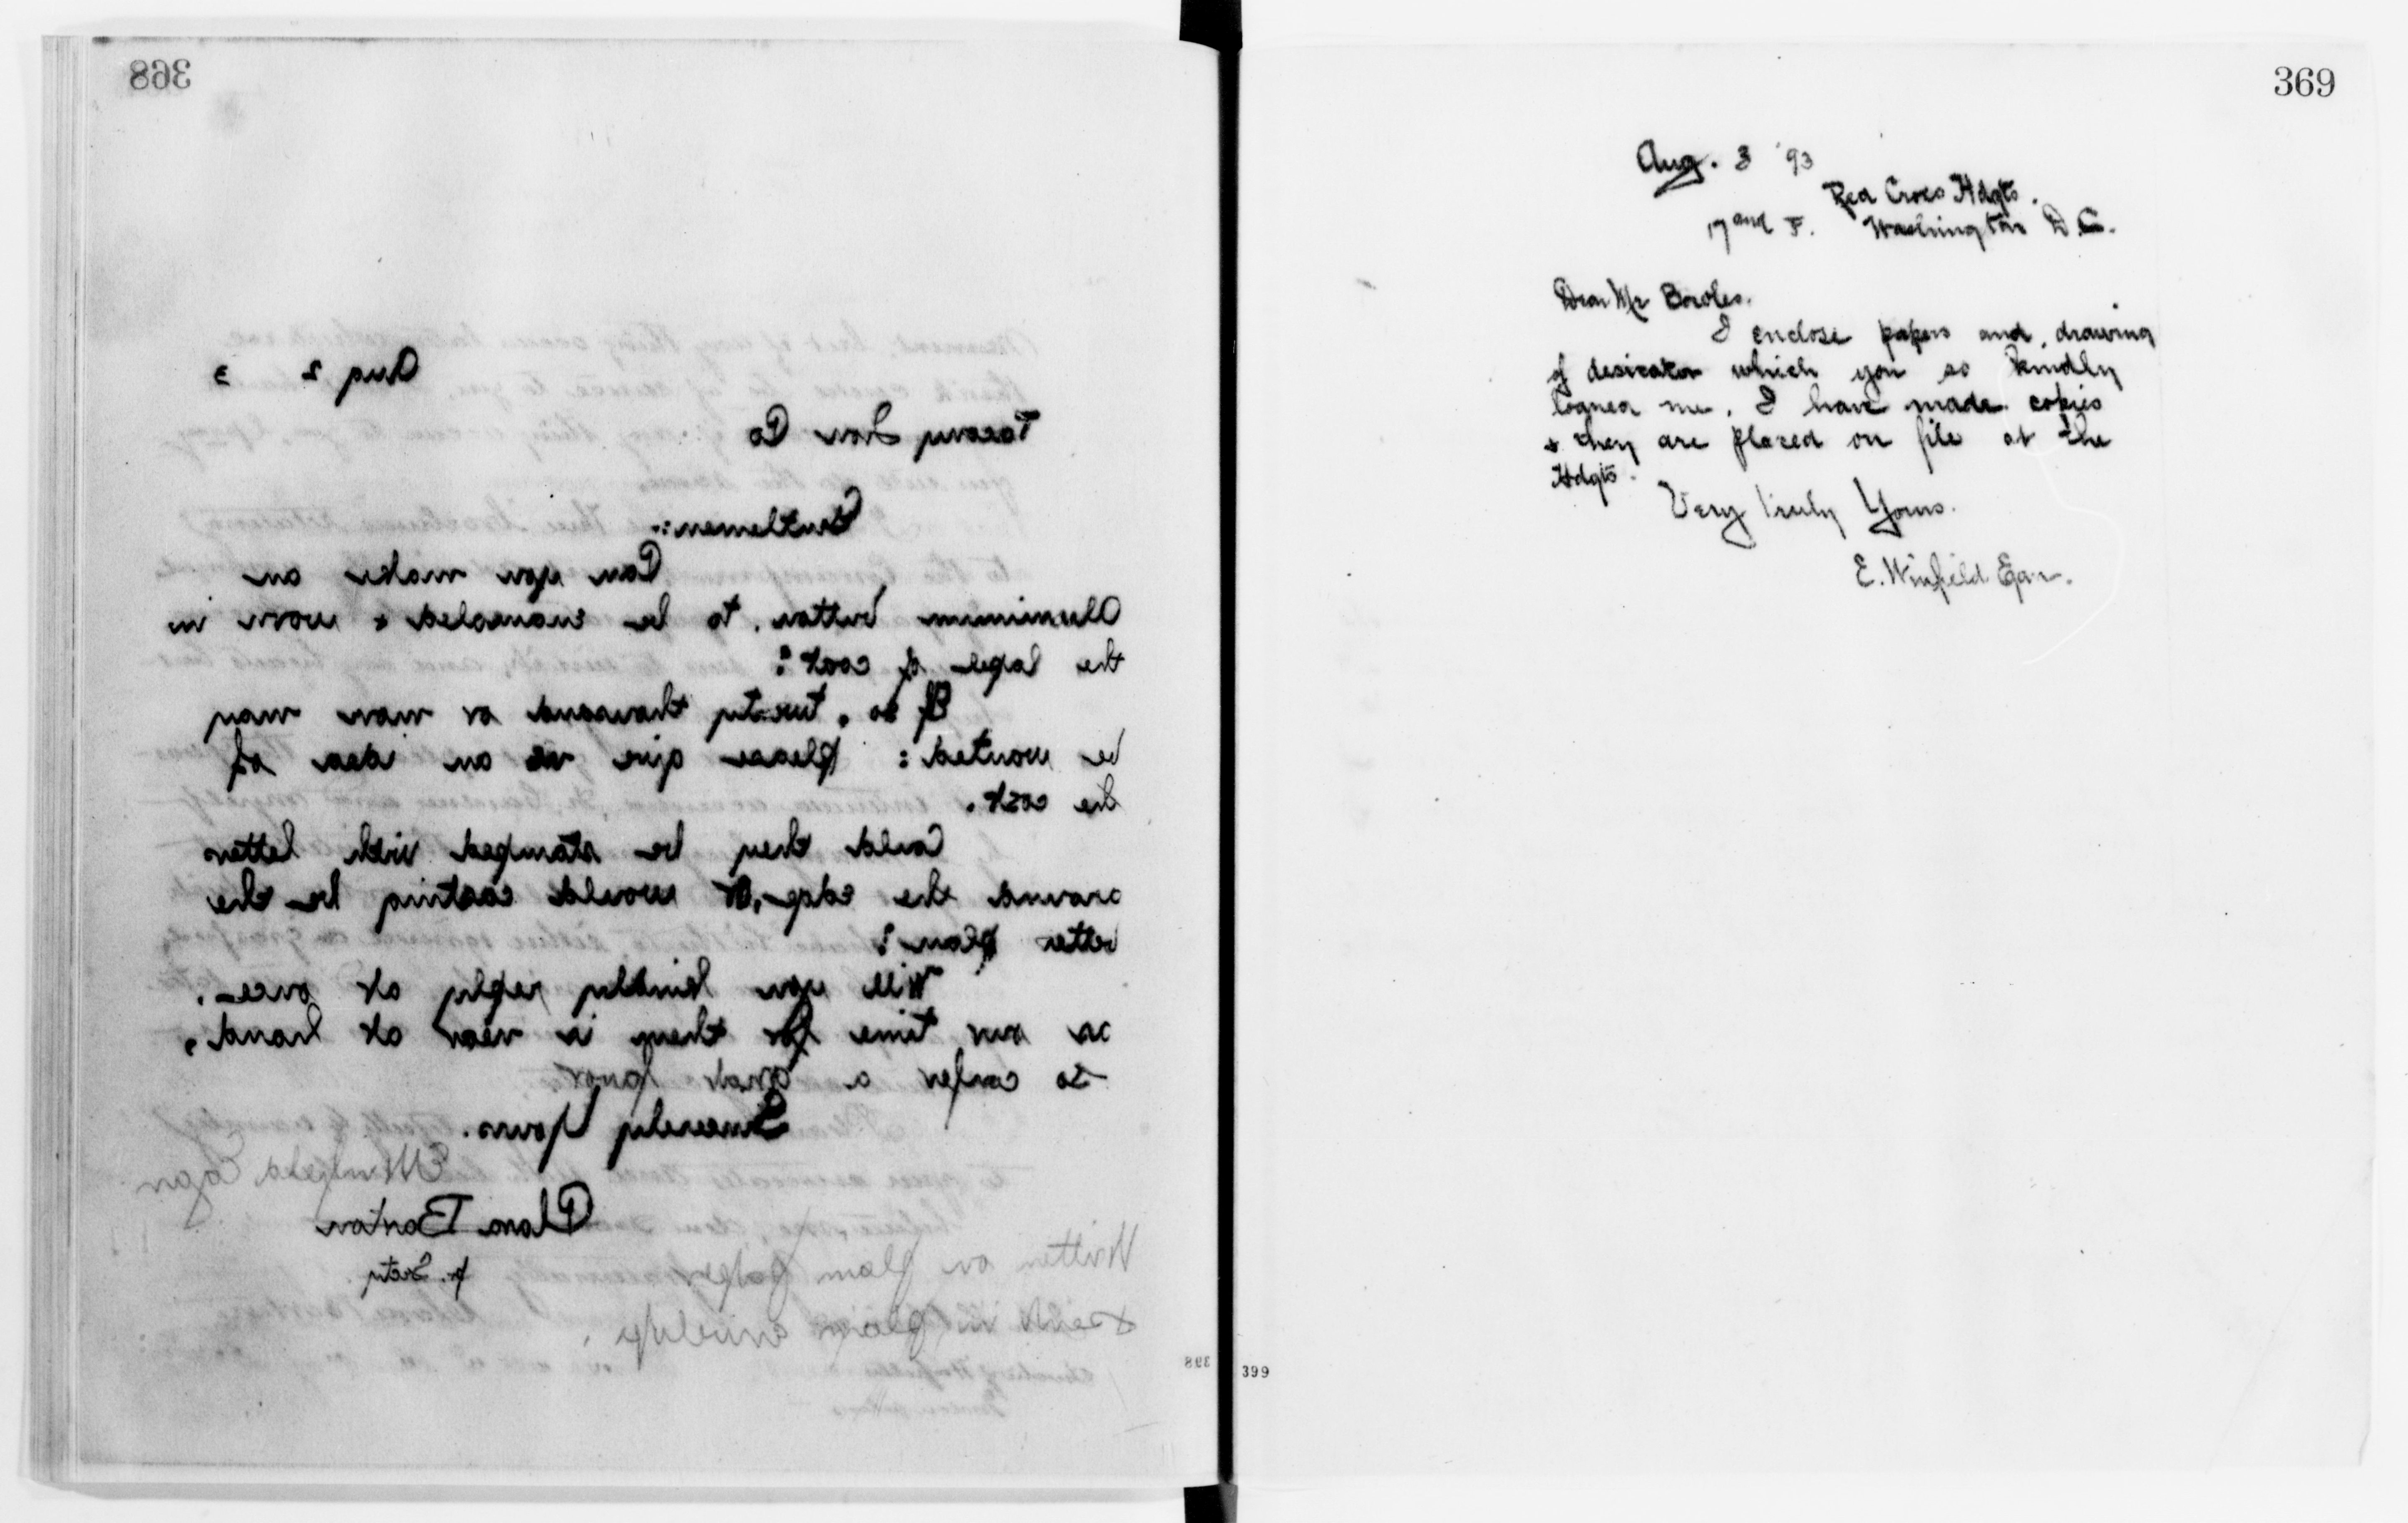 368
Aug 2 3
Gentlemen:
Can you make an
Aluminum button, to be enameled & worn in
the lapel of coat?
If so, twenty thousand or more may
be wanted: please give us an idea of
the cost.
Could they be stamped with letters
around the edge, or would casting be the
better plan?
Will you kindly reply at once.
as our time for them is near at hand,
to confer a great favor
Sincerely Yours.
Clara Barton
p. Secty
Written on plain paper
369
Aug. 3 '93
Red Cross Hdqts.
17 and F. Washington D.C.
Dear Mr Bowles.
I enclose papers and drawing
of desicator which you so kindly
loaned me. I have made copies
& they are placed on file at the
Hdqts.
Very truly Yours.
E. Winfield Egan.
398
399